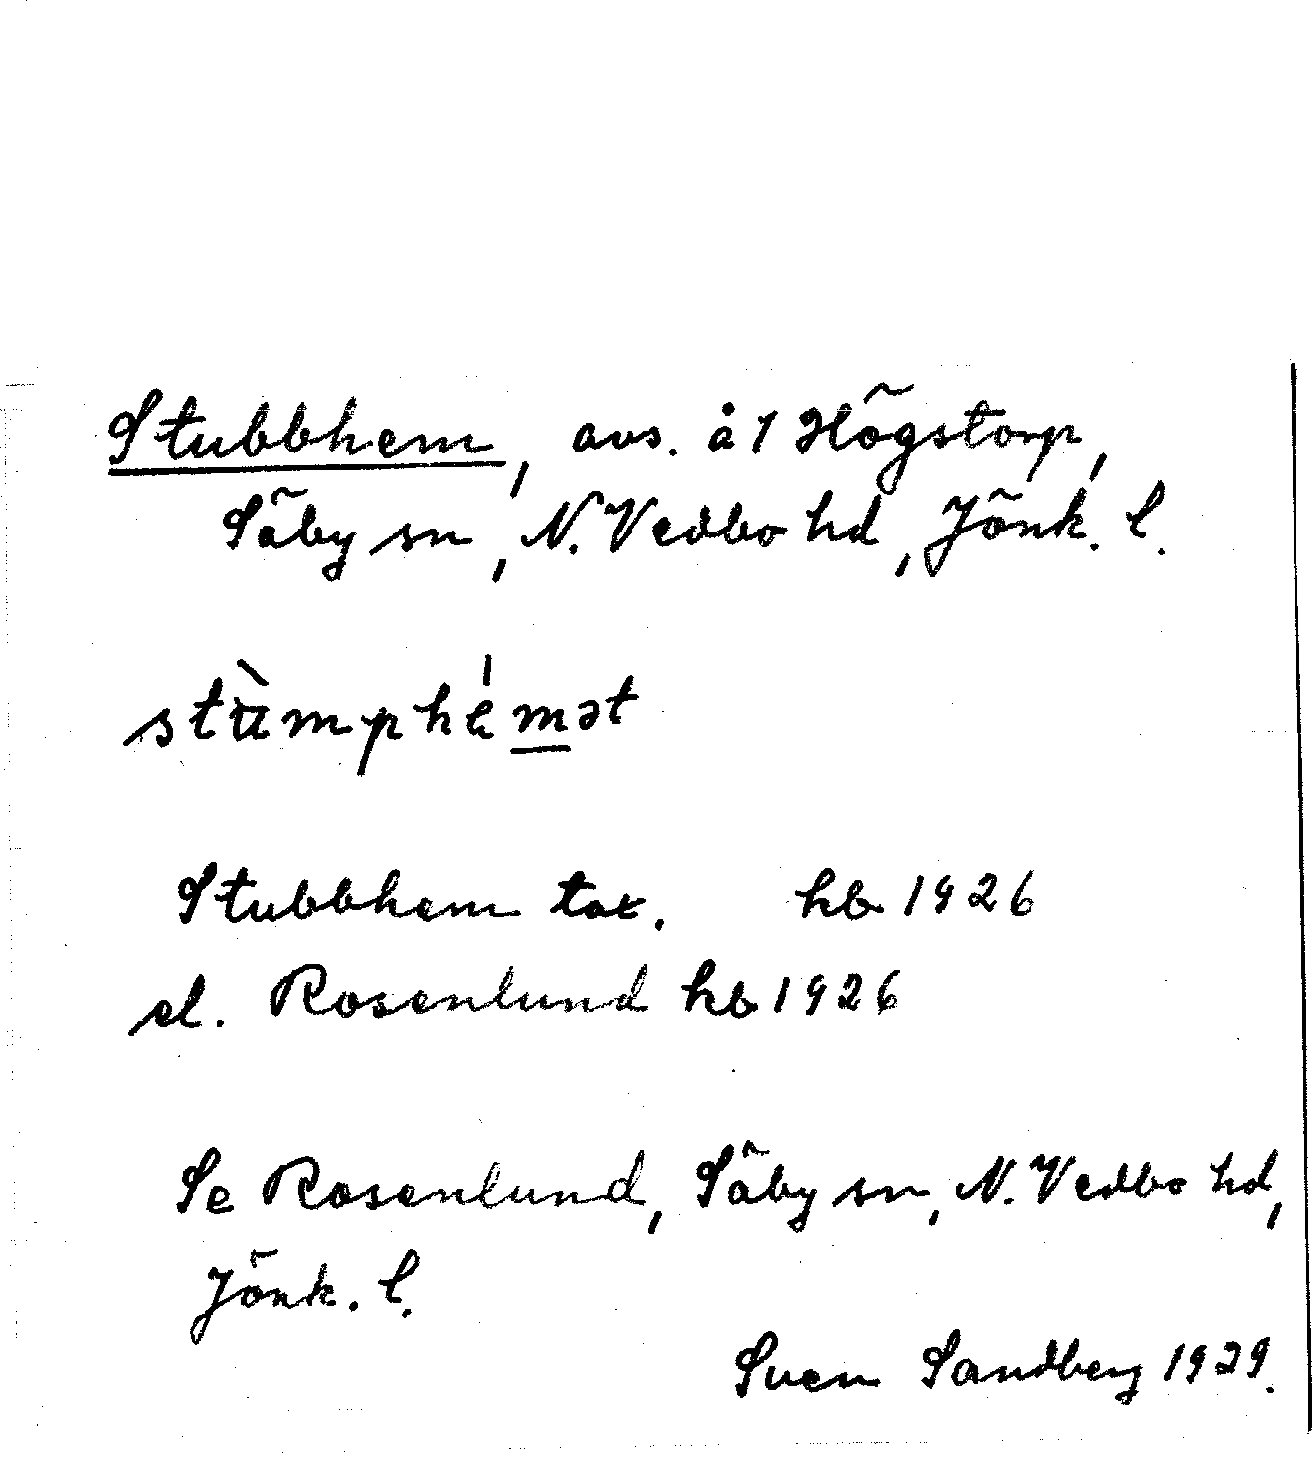 Stubbhem, avs. å 1 Högstorp,
Säby sn, N. Vedbo hd, Jönk. l.
stùmphémət
Stubbhem tax. hb 1926
el. Rosenlund hb 1926
Se Rosenlund, Säby sn, N. Vedbo hd,
Jönk. l.
Sven Sandberg 1929.